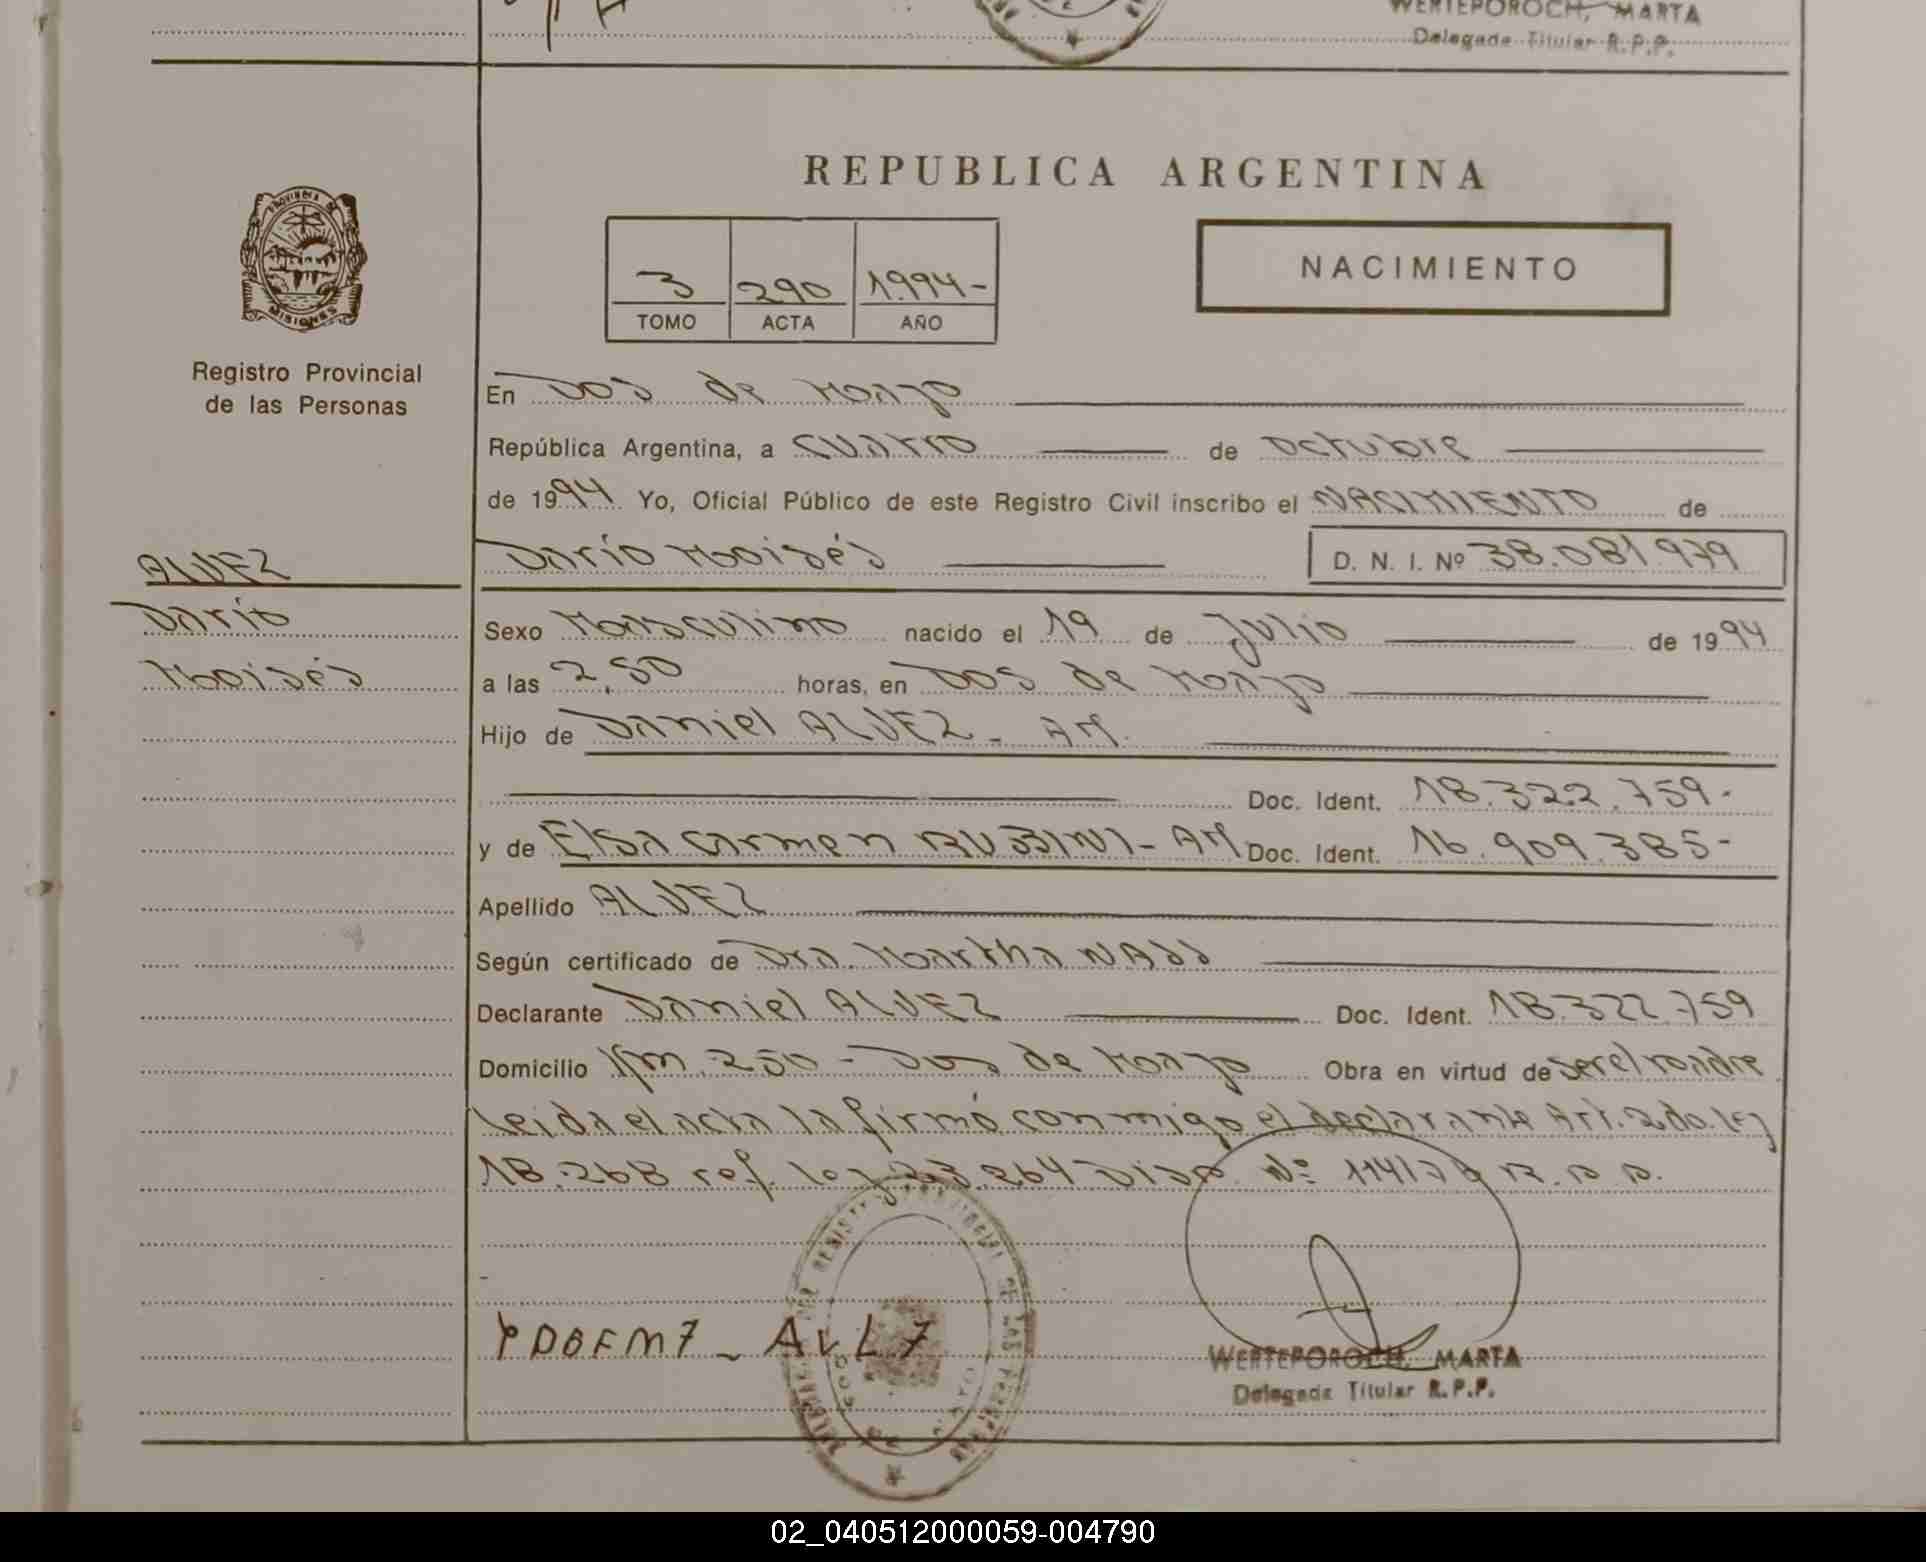 WERTEPOROCH, MARTA
Delegada Titular R.P.P.
PROVINCIA DE
MISIONES
Registro Provincial
de las Personas
REPUBLICA ARGENTINA
3 290 1994-
TOMO ACTA AÑO
NACIMIENTO
En Dos de Mayo
República Argentina, a cuatro de octubre
de 1994 Yo, Oficial Público de este Registro Civil inscribo el NACIMIENTO de
ALVEZ
Darío Moisés D. N. I. Nº 38.081.979
Darío
Moisés
Sexo Masculino nacido el 19 de Julio de 1994
a las 2,50 horas, en Dos de Mayo
Hijo de Daniel ALVEZ - AM.
Doc. Ident. 18.322.759-
y de Elsa Carmen RUBINI - AM Doc. Ident. 16.909.385-
Apellido ALVEZ
Según certificado de Dra. Martha NASS
Declarante Daniel ALVEZ Doc. Ident. 18.322.759
Domicilio Km. 250 - Dos de Mayo Obra en virtud de ser el padre
leida el acta la firmó conmigo el declarante Art. 2do. ley
18.268 ref. ley 23.264 Disp. Nº 114/79 R.P.P.
REGISTRO PROVINCIAL DE LAS PERSONAS
PDOFM7 - AVL7
WERTEPOROCH, MARTA
Delegada Titular R.P.P.
02_040512000059-004790